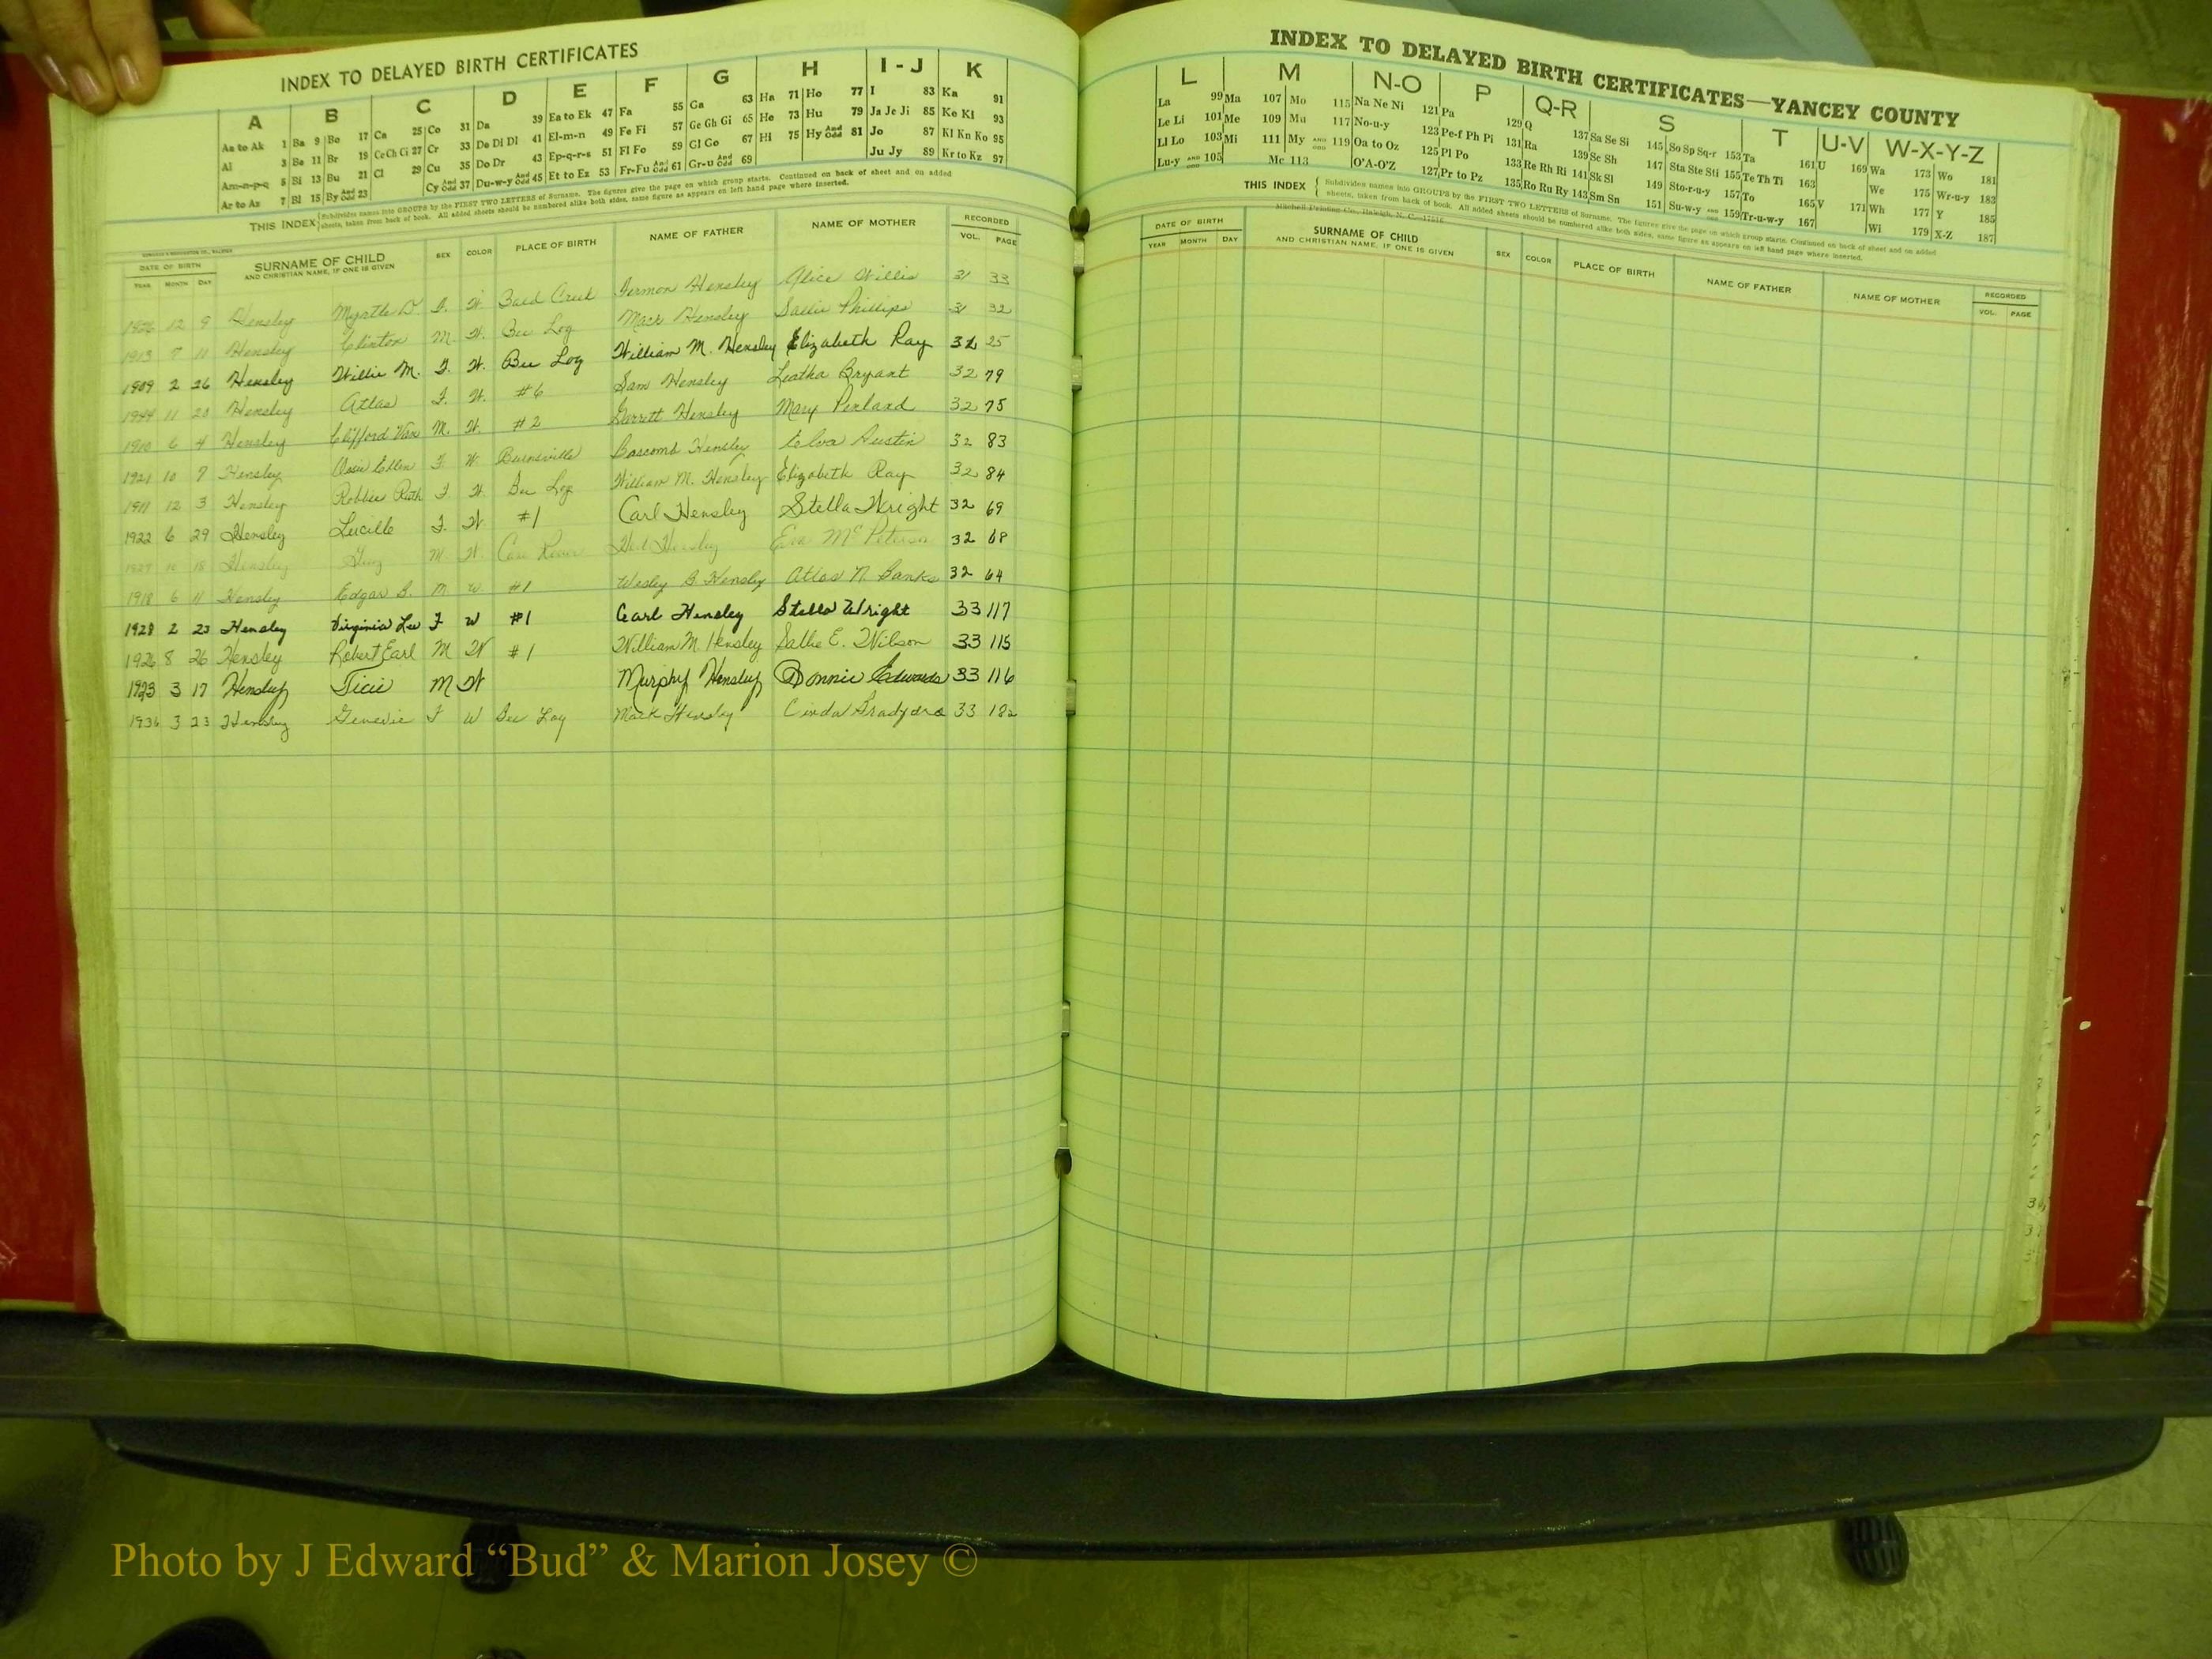 INDEX TO DELAYED BIRTH CERTIFICATES
A B C D E F G H I - J K
Aa to Ak 1 Ba 9 Bo 17 Ca 25 Co 31 Da 39 Ea to Ek 47 Fa 55 Ga 63 Ha 71 Ho 77 I 83 Ka 91
Al 3 Be 11 Br 19 Ce Ch Ci 27 Cr 33 De Di Dl 41 El-m-n 49 Fe Fi 57 Ge Gh Gi 65 He 73 Hu 79 Ja Je Ji 85 Ke Kl 93
Am-n-p-q 5 Bi 13 Bu 21 Cl 29 Cu 35 Do Dr 43 Ep-q-r-s 51 Fl Fo 59 Gl Go 67 Hi 75 Hy And Odd 81 Jo 87 Kl Kn Ko 95
Ar to Az 7 Bl 15 By And Odd 23 Cy And Odd 37 Du-w-y And Odd 45 Et to Ez 53 Fr-Fu And Odd 61 Gr-u And Odd 69 Ju Jy 89 Kr to Kz 97
THIS INDEX { Subdivides names into GROUPS by the FIRST TWO LETTERS of Surname. The figures give the page on which group starts. Continued on back of sheet and on added
sheets, taken from back of book. All added sheets should be numbered alike both sides, same figure as appears on left hand page where inserted.
DATE OF BIRTH SURNAME OF CHILD SEX COLOR PLACE OF BIRTH NAME OF FATHER NAME OF MOTHER RECORDED
YEAR MONTH DAY AND CHRISTIAN NAME, IF ONE IS GIVEN VOL. PAGE
12 9 Hensley Myrtle D. F. W. Bald Creek Hensley Alice Willis 31 33
1913 7 11 Hensley Clinton M. W. Bee Log Mack Hensley Sallie Phillips 31 32
1909 2 26 Hensley Willie M. F. W. Bee Log William M. Hensley Elizabeth Ray 32 25
1944 11 Hensley Atlas F. W. #6 Sam Hensley Leatha Bryant 32 79
1910 6 4 Hensley Clifford Van M. W. #2 Garrett Hensley Mary Penland 32 75
1921 10 7 Hensley Ossie Ellen F. W. Burnsville Bascomb Hensley Elva Austin 32 83
1911 12 3 Hensley Robbie Ruth F. W. Bee Log William M. Hensley Elizabeth Ray 32 84
1922 6 29 Hensley Lucille F. W #1 Carl Hensley Stella Wright 32 69
Hensley M W. Cane River Hensley McPeterson 32 68
1918 6 11 Hensley Edgar B. M W #1 Wesley B. Hensley Atlas N. Banks 32 64
1928 2 23 Hensley Virginia Lee F W #1 Carl Hensley Stella Wright 33 117
1926 8 26 Hensley Robert Earl M W #1 William M. Hensley Sallie E. Wilson 33 115
1923 3 17 Hensley Ticie M W Murphy Hensley Bonnie Edwards 33 116
1936 3 23 Hensley Genevie F W Bee Log Mack Hensley 33 182
INDEX TO DELAYED BIRTH CERTIFICATES—YANCEY COUNTY
L M N-O P Q-R S T U-V W-X-Y-Z
La 99 Ma 107 Mo 115 Na Ne Ni 121 Pa 129 Q 137 Sa Se Si 145 So Sp Sq-r 153 Ta 161 U 169 Wa 173 Wo 181
Le Li 101 Me 109 Mu 117 No-u-y 123 Pe-f Ph Pi 131 Ra 139 Sc Sh 147 Sta Ste Sti 155 Te Th Ti 163 We 175 Wr-u-y 183
Ll Lo 103 Mi 111 My AND ODD 119 Oa to Oz 125 Pl Po 133 Re Rh Ri 141 Sk Sl 149 Sto-r-u-y 157 To 165 V 171 Wh 177 Y 185
Lu-y AND ODD 105 Mc 113 O'A-O'Z 127 Pr to Pz 135 Ro Ru Ry 143 Sm Sn 151 Su-w-y AND ODD 159 Tr-u-w-y 167 Wi 179 X-Z 187
THIS INDEX { Subdivides names into GROUPS by the FIRST TWO LETTERS of Surname. The figures give the page on which group starts. Continued on back of sheet and on added
sheets, taken from back of book. All added sheets should be numbered alike both sides, same figure as appears on left hand page where inserted.
Mitchell Printing Co., Raleigh, N. C.
DATE OF BIRTH SURNAME OF CHILD SEX COLOR PLACE OF BIRTH NAME OF FATHER NAME OF MOTHER RECORDED
YEAR MONTH DAY AND CHRISTIAN NAME, IF ONE IS GIVEN VOL. PAGE
Photo by J Edward “Bud” & Marion Josey ©